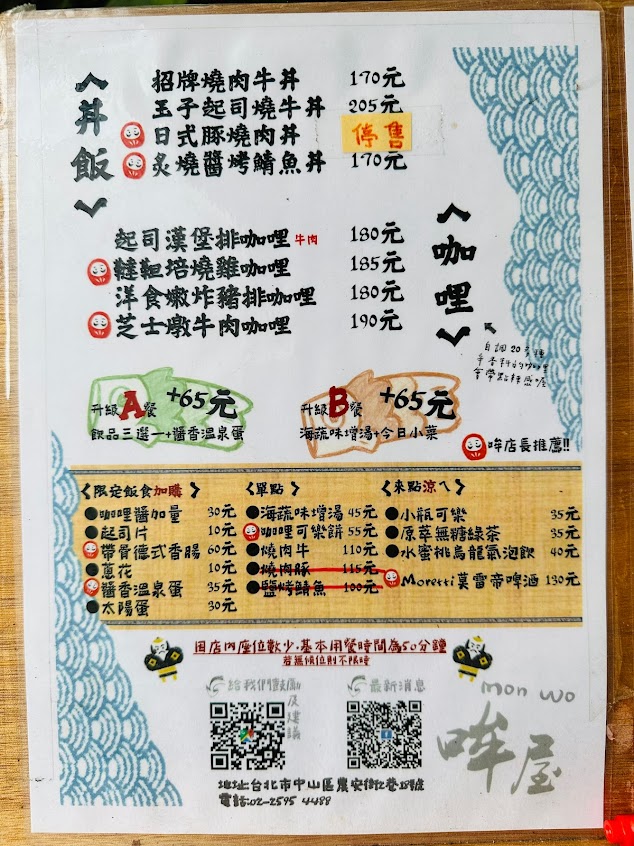 丼飯
招牌燒肉牛丼 170元
玉子起司燒牛丼 205元
日式豚燒肉丼 停售
炙燒醬烤鯖魚丼 170元
咖哩
起司漢堡排咖哩 牛肉 180元
韃靼培燒雞咖哩 185元
洋食嫩炸豬排咖哩 180元
芝士燉牛肉咖哩 190元
自調20多種
辛香料的咖哩
會帶點辣感喔
升級A餐 +65元
飲品三選一+醬香溫泉蛋
升級B餐 +65元
海蔬味增湯+今日小菜
哞店長推薦!!
<限定飯食加購>
咖哩醬加量 30元
起司片 10元
帶骨德式香腸 60元
蔥花 10元
醬香溫泉蛋 35元
太陽蛋 30元
<單點>
海蔬味增湯 45元
咖哩可樂餅 55元
燒肉牛 110元
燒肉豚 115元
鹽烤鯖魚 100元
<來點涼ㄟ>
小瓶可樂 35元
原萃無糖綠茶 35元
水蜜桃烏龍氣泡飲 40元
Moretti莫雷帝啤酒 130元
因店內座位數少,基本用餐時間為50分鐘
若無候位則不限時
給我們鼓勵
及建議
最新消息
mon wo
哞屋
地址:台北市中山區農安街2巷18號
電話:02-2595 4488